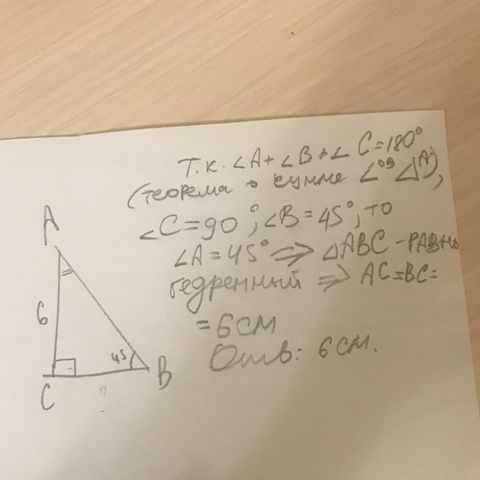 Т.к. ∠A+∠B+∠C=180°
(теорема о сумме ∠ов △),
∠C=90°, ∠B=45°, то
∠A=45° ⇒ △ABC - РАВНО
бедренный ⇒ AC=BC=
=6см
Отв: 6 см.
A
6
45
C
B
?